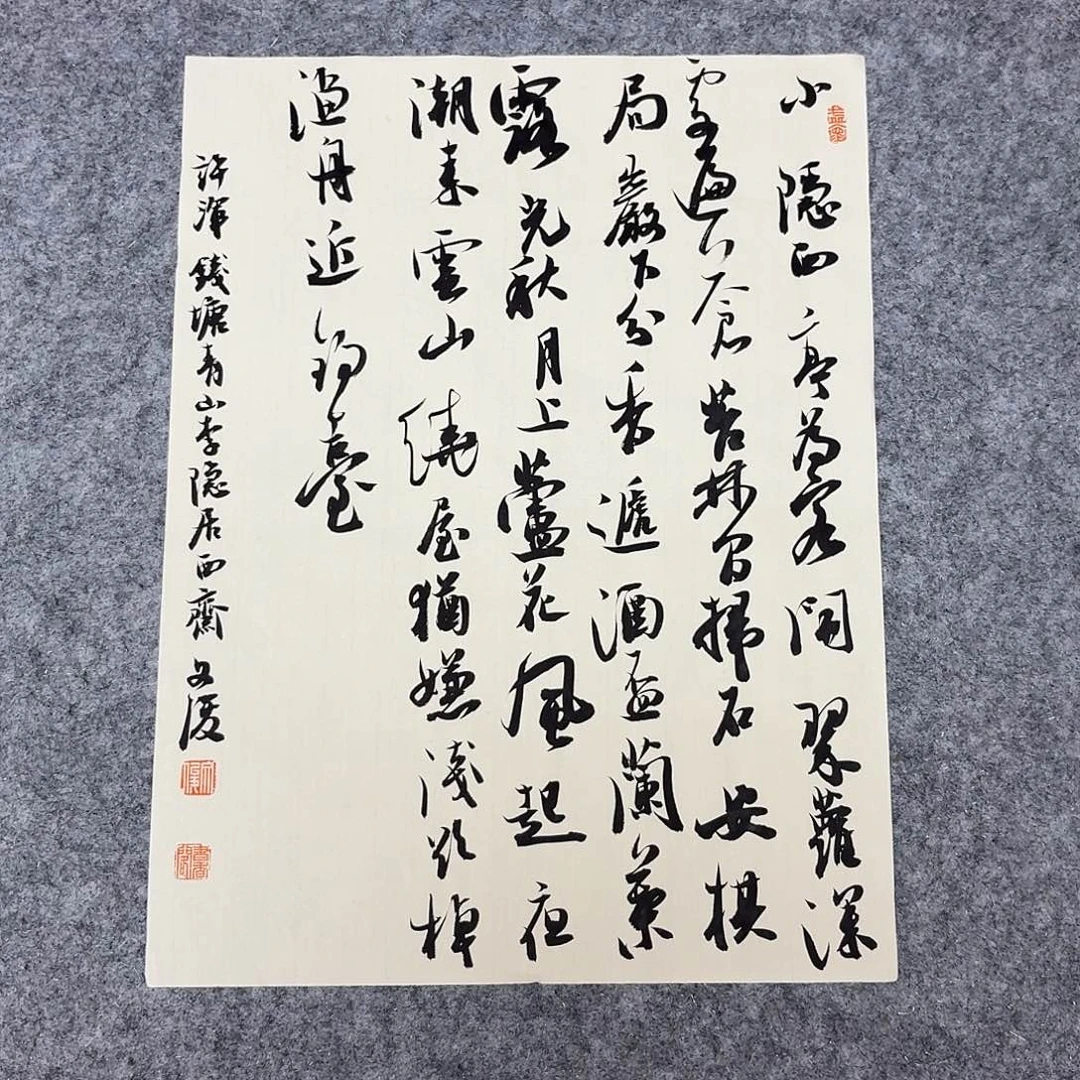 小隱西亭為客開翠蘿深
處遍蒼苔林間掃石安棋
局巖下分泉遞酒盃蘭葉
露光秋月上蘆花風起夜
潮來雲山繞屋猶嫌淺欲棹
漁舟近釣臺
許渾錢塘青山李隱居西齋